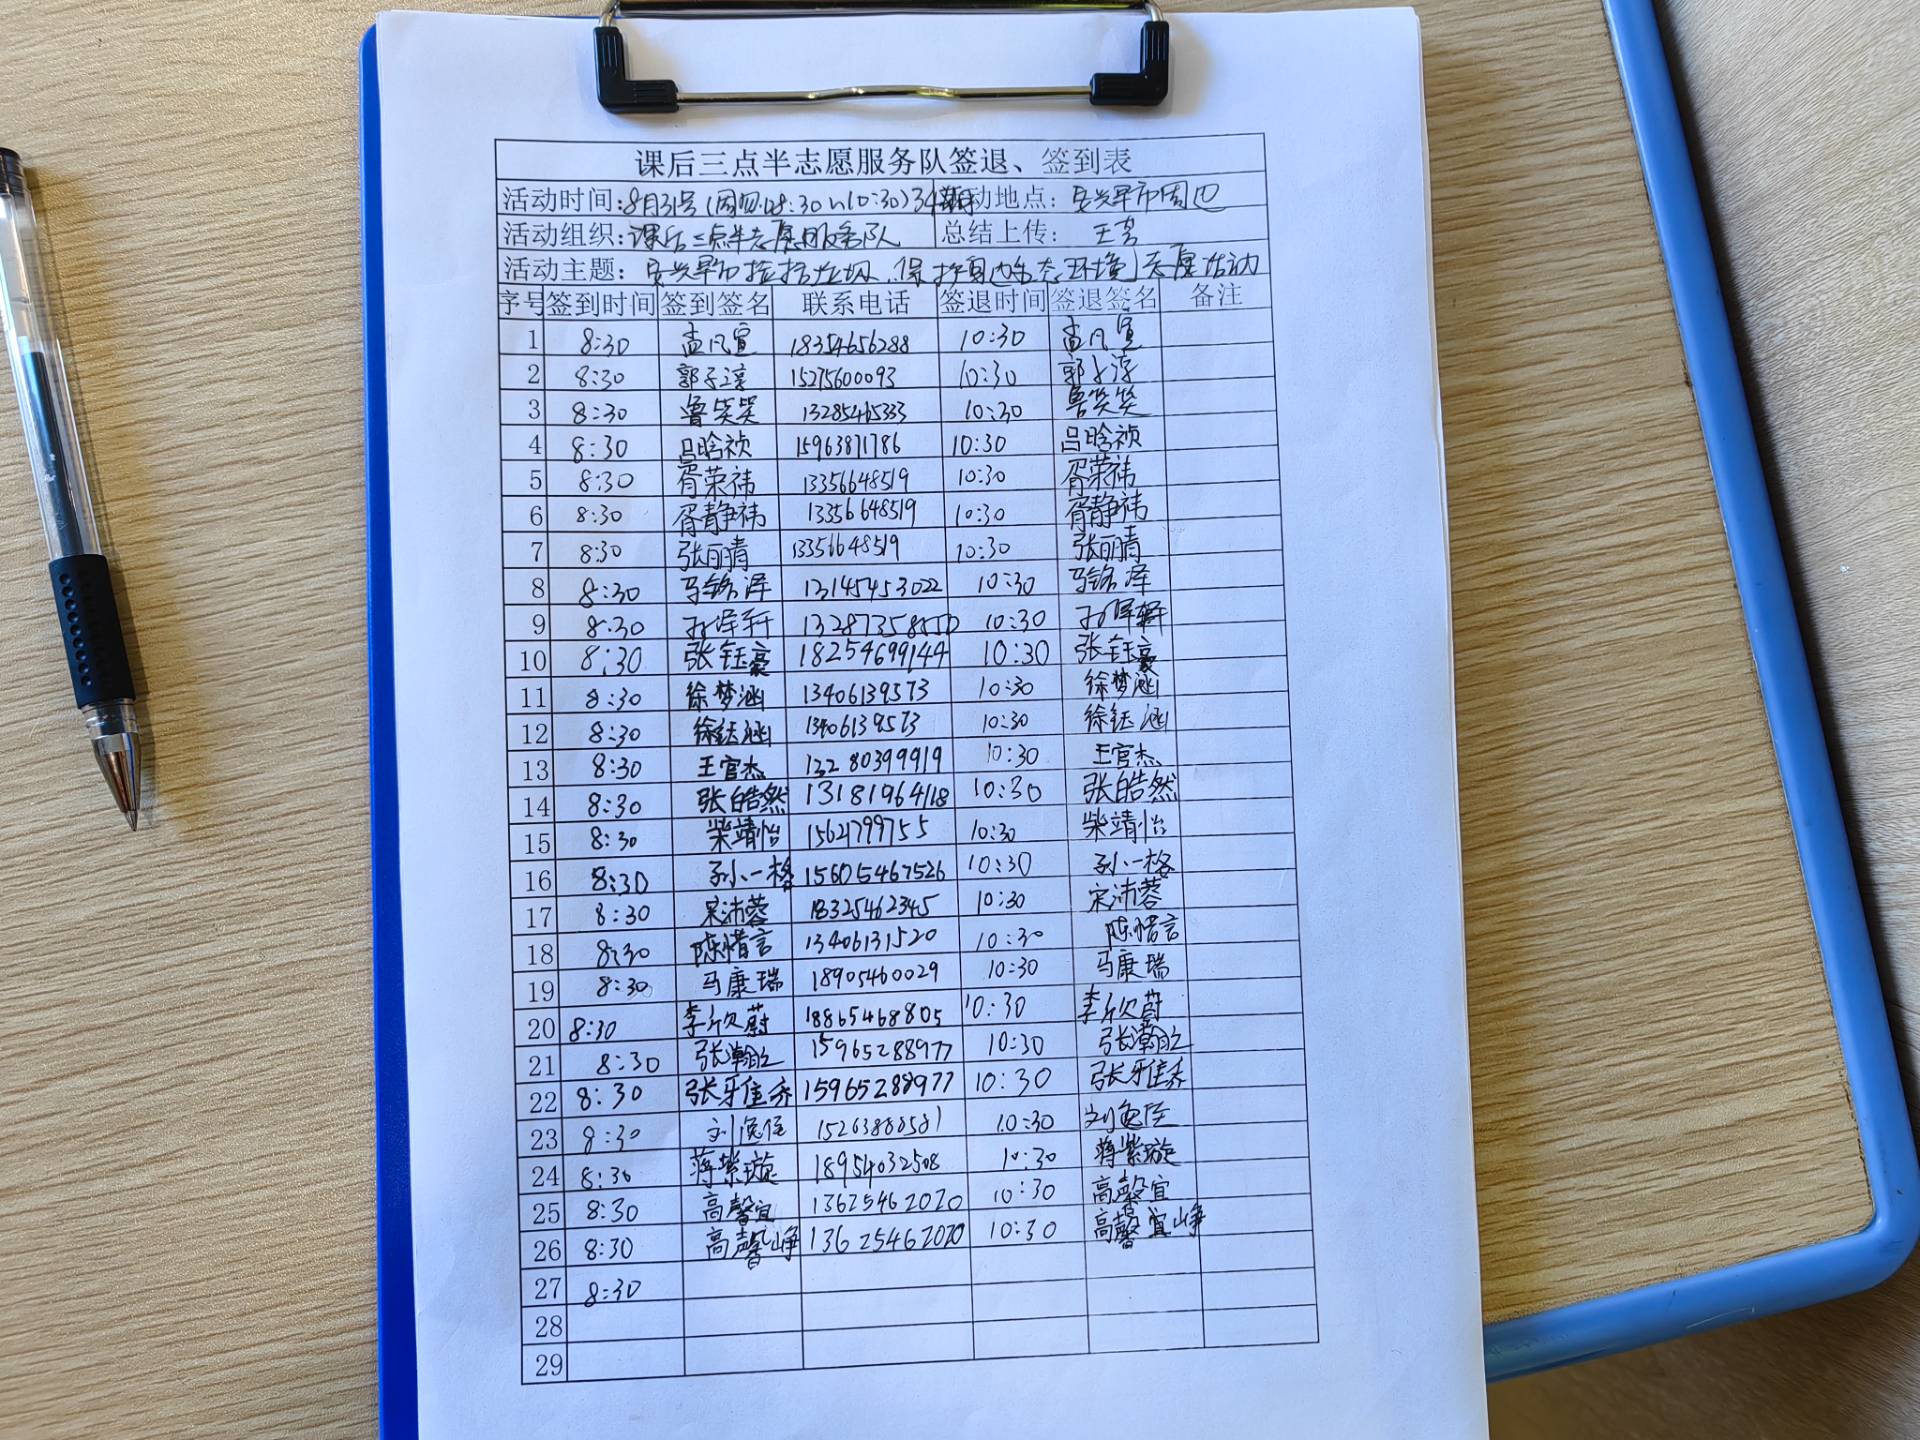 课后三点半志愿服务队签退、签到表
活动时间:8月31号(周四.08:30~10:30)34期 活动地点: 安兴早市周边
活动组织:课后三点半志愿服务队 总结上传: 王芳
活动主题: 安兴早市捡拾垃圾、保护身边生态环境志愿活动
序号 签到时间 签到签名 联系电话 签退时间 签退签名 备注
1 8:30 孟凡宣 18354656288 10:30 孟凡宣
2 8:30 郭子淳 15275600093 10:30 郭子淳
3 8:30 鲁笑笑 13285465333 10:30 鲁笑笑
4 8:30 吕晗祯 15963871786 10:30 吕晗祯
5 8:30 胥荣祎 13356648519 10:30 胥荣祎
6 8:30 胥静祎 13356648519 10:30 胥静祎
7 8:30 张丽晴 13356648519 10:30 张丽晴
8 8:30 马铭泽 13145453022 10:30 马铭泽
9 8:30 孙泽轩 10:30 孙泽轩
10 8:30 张钰豪 18254699149 10:30 张钰豪
11 8:30 徐梦涵 13406139573 10:30 徐梦涵
12 8:30 徐钰涵 13406139573 10:30 徐钰涵
13 8:30 王官杰 13280399919 10:30 王官杰
14 8:30 张皓然 13181964118 10:30 张皓然
15 8:30 柴靖怡 15621799755 10:30 柴靖怡
16 8:30 孙一格 15605467526 10:30 孙一格
17 8:30 宋沛蓉 18325462345 10:30 宋沛蓉
18 8:30 陈惜言 13406131520 10:30 陈惜言
19 8:30 马康瑞 18905460029 10:30 马康瑞
20 8:30 李欣蔚 18865468805 10:30 李欣蔚
21 8:30 15965288977 10:30
22 8:30 张雅乔 15965288977 10:30 张雅乔
23 8:30 15263888581 10:30
24 8:30 蒋紫璇 18954032508 10:30 蒋紫璇
25 8:30 高馨宜 13625462020 10:30 高馨宜
26 8:30 13625462020 10:30
27 8:30
28
29